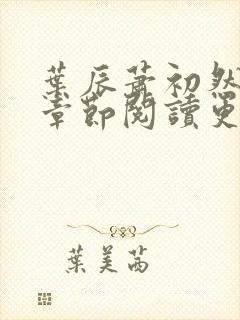 葉辰蕭初然
章節閱讀更
葉美茜